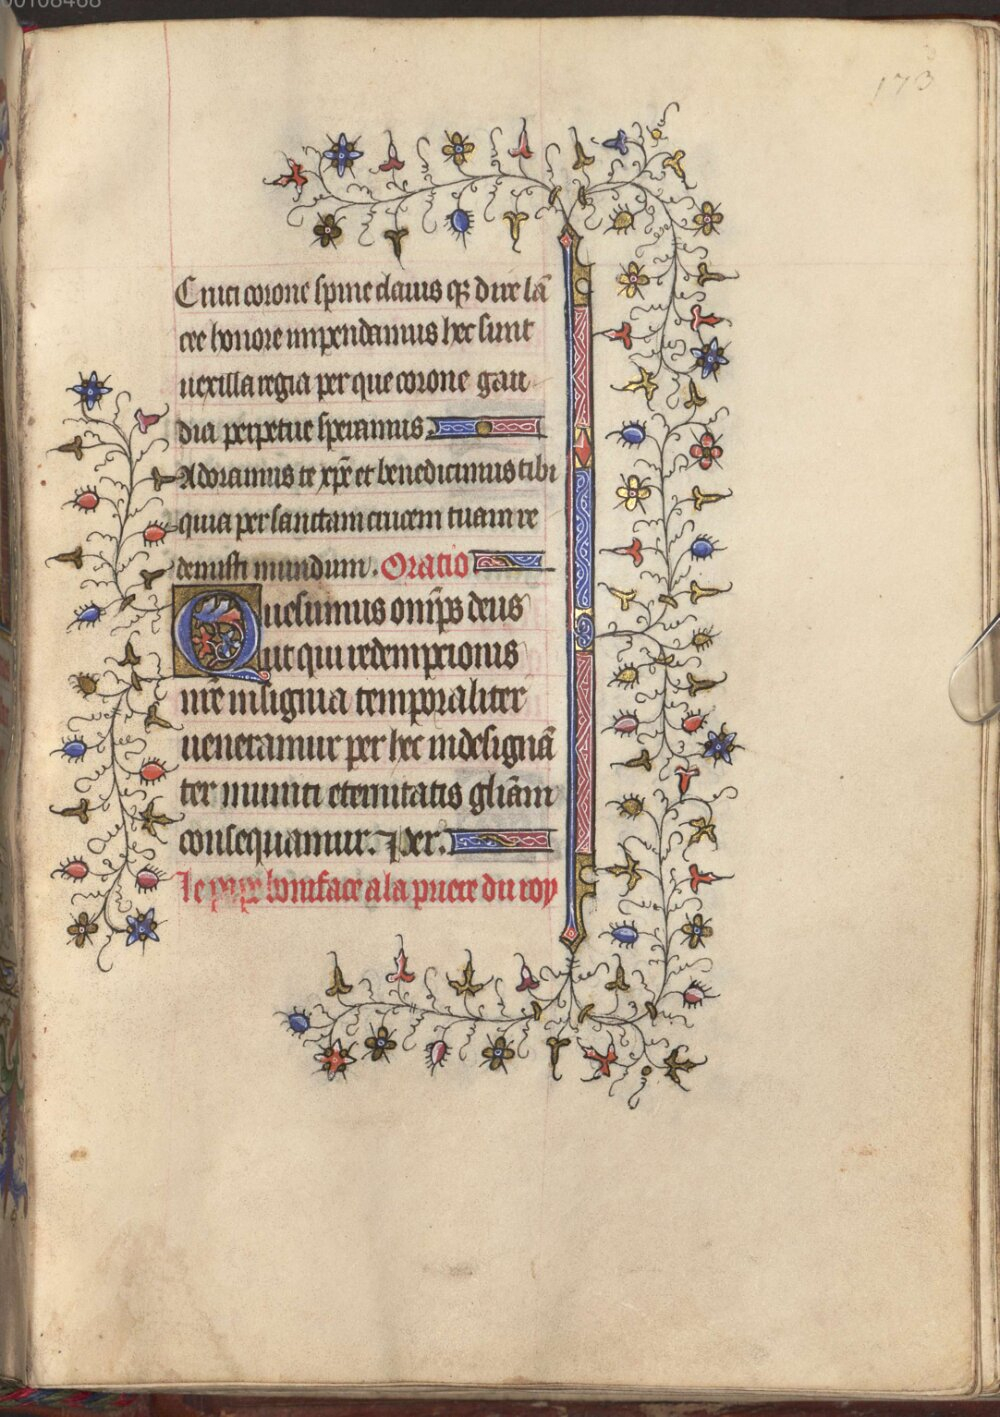 00108468
173
Cruci corone spine clauis qꝫ dire lā
cee honore impendamus hec sunt
uexilla regia per que corone gau
dia perpetue speramus.
Adoramus te xp̄e et benedicimus tibi
quia per sanctam crucem tuam re
demisti mundum. Oratio
Quesumus omp̄s deus
ut qui redempcionis
nr̄e insignia temporaliter
ueneramur per hec indesignā
ter muniti eternitatis gl̄iam
consequamur. Per.
le pape boniface a la priere du roy